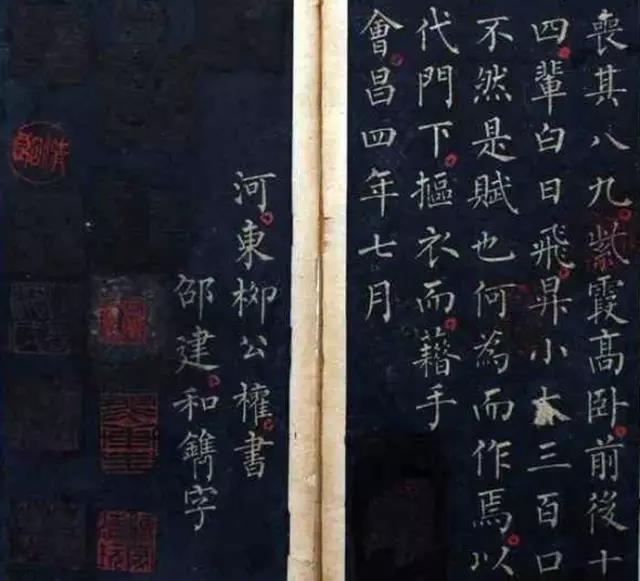 喪其八九紫霞高卧前後十
四輩白日飛昇小大三百口
不然是賦也何為而作焉以
代門下摳衣而藉手
會昌四年七月
河東柳公權書
邵建和鐫字